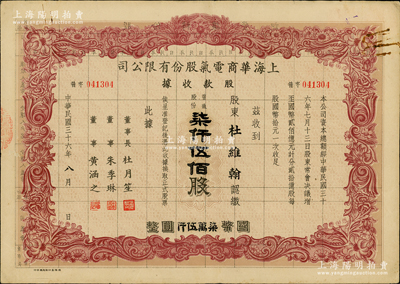 上海陽明拍賣
司公限有份股氣電商華海上
據收款股
字第 041304
字第 041304
本公司資本總額經中華民國三十
六年七月十三日股東常會決議增
至國幣貳佰億元計分貳拾億股每
股國幣拾元一次收足
茲收到
股東 杜維翰 認繳
柒仟伍佰股
此據
董事長 杜月笙
董事 朱季琳
董事 黃涵之
中華民國三十六年八月 日
國幣 柒萬伍仟 圓整
上海陽明拍賣